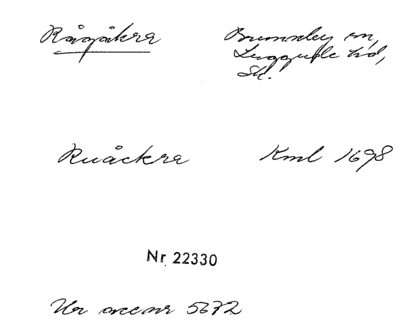 Rågåkra
Brunnby sn,
Luggude hd,
Sk.
Ruåckra Kml 1698
Nr 22330
Ur acc.nr 5672